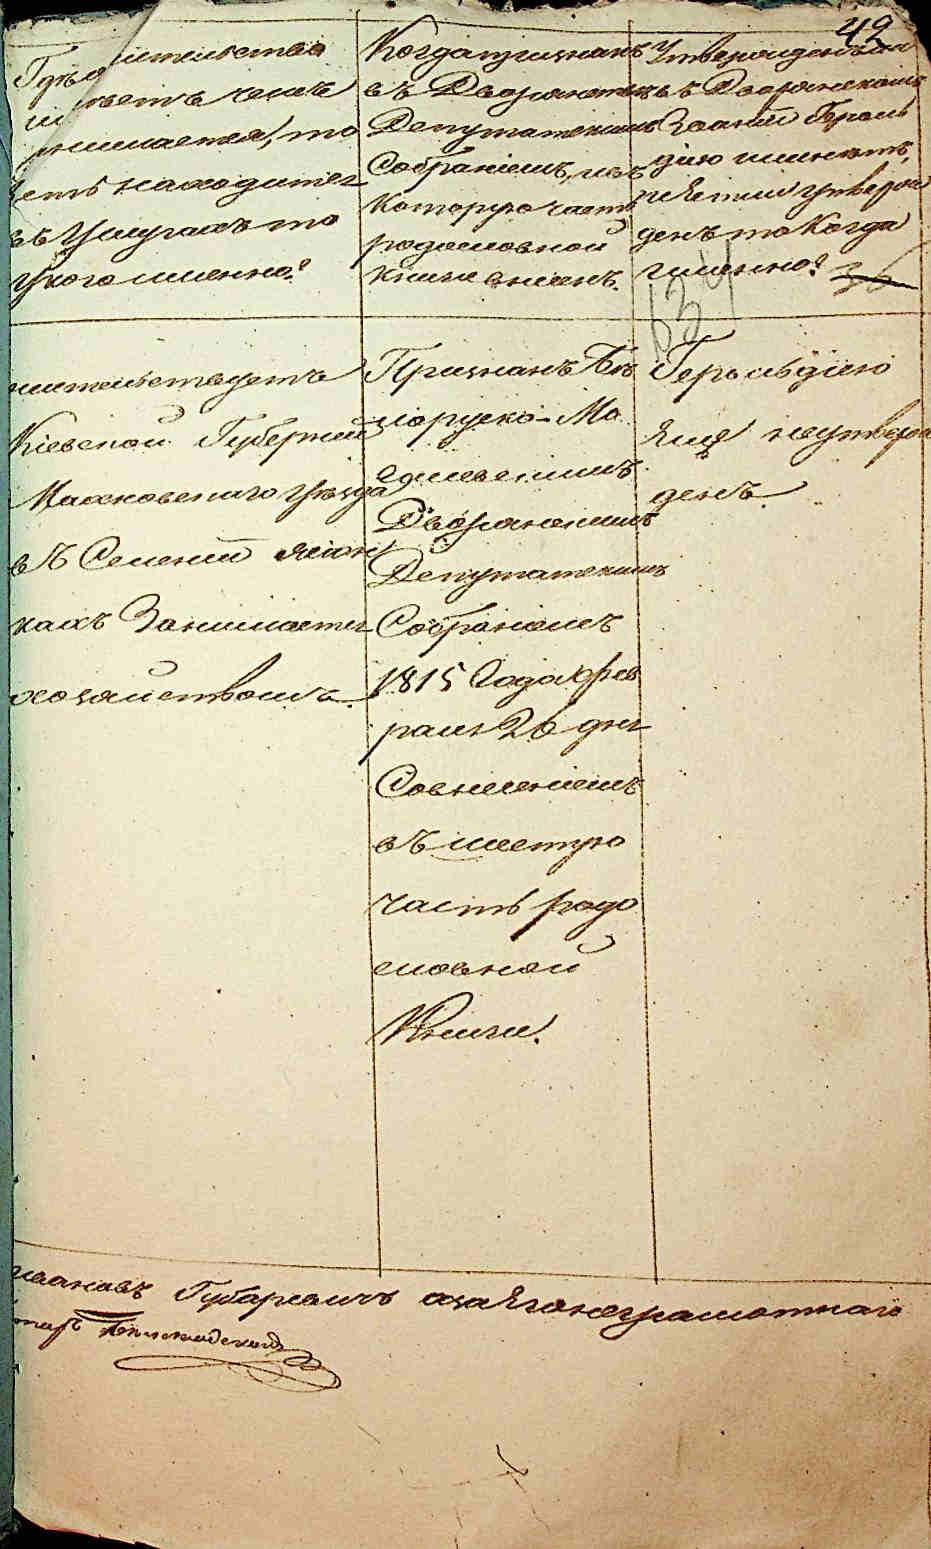 42
Гдѣ жительство
имѣетъ чемъ
занимается, то
есть находится
въ услугахъ то
у кого именно?
Когда признанъ
въ Дворянствѣ
Депутатскимъ
Собраніемъ, и въ
которую часть
родословной
книги внесенъ.
Утвержденъ ли
въ Дворянскомъ
Званіи Героль
діею или нѣтъ,
и если утверж
денъ то когда
именно?
36
634
жительствуетъ
Кіевской Губерніи
Махновскаго уѣзда
въ Селеніи
кахъ Занимается
хозяйствомъ.
Признанъ Бѣ
лоруско-Мо
гилевскимъ
Дворянскимъ
Депутатскимъ
Собраніемъ
1815 Года Фев
раля 26 дня
Совнесеніемъ
въ шестую
часть родо
словной
Книги.
Герольдіею
Яще неутверж
денъ.
Губаревичъ а за Его неграмотнаго